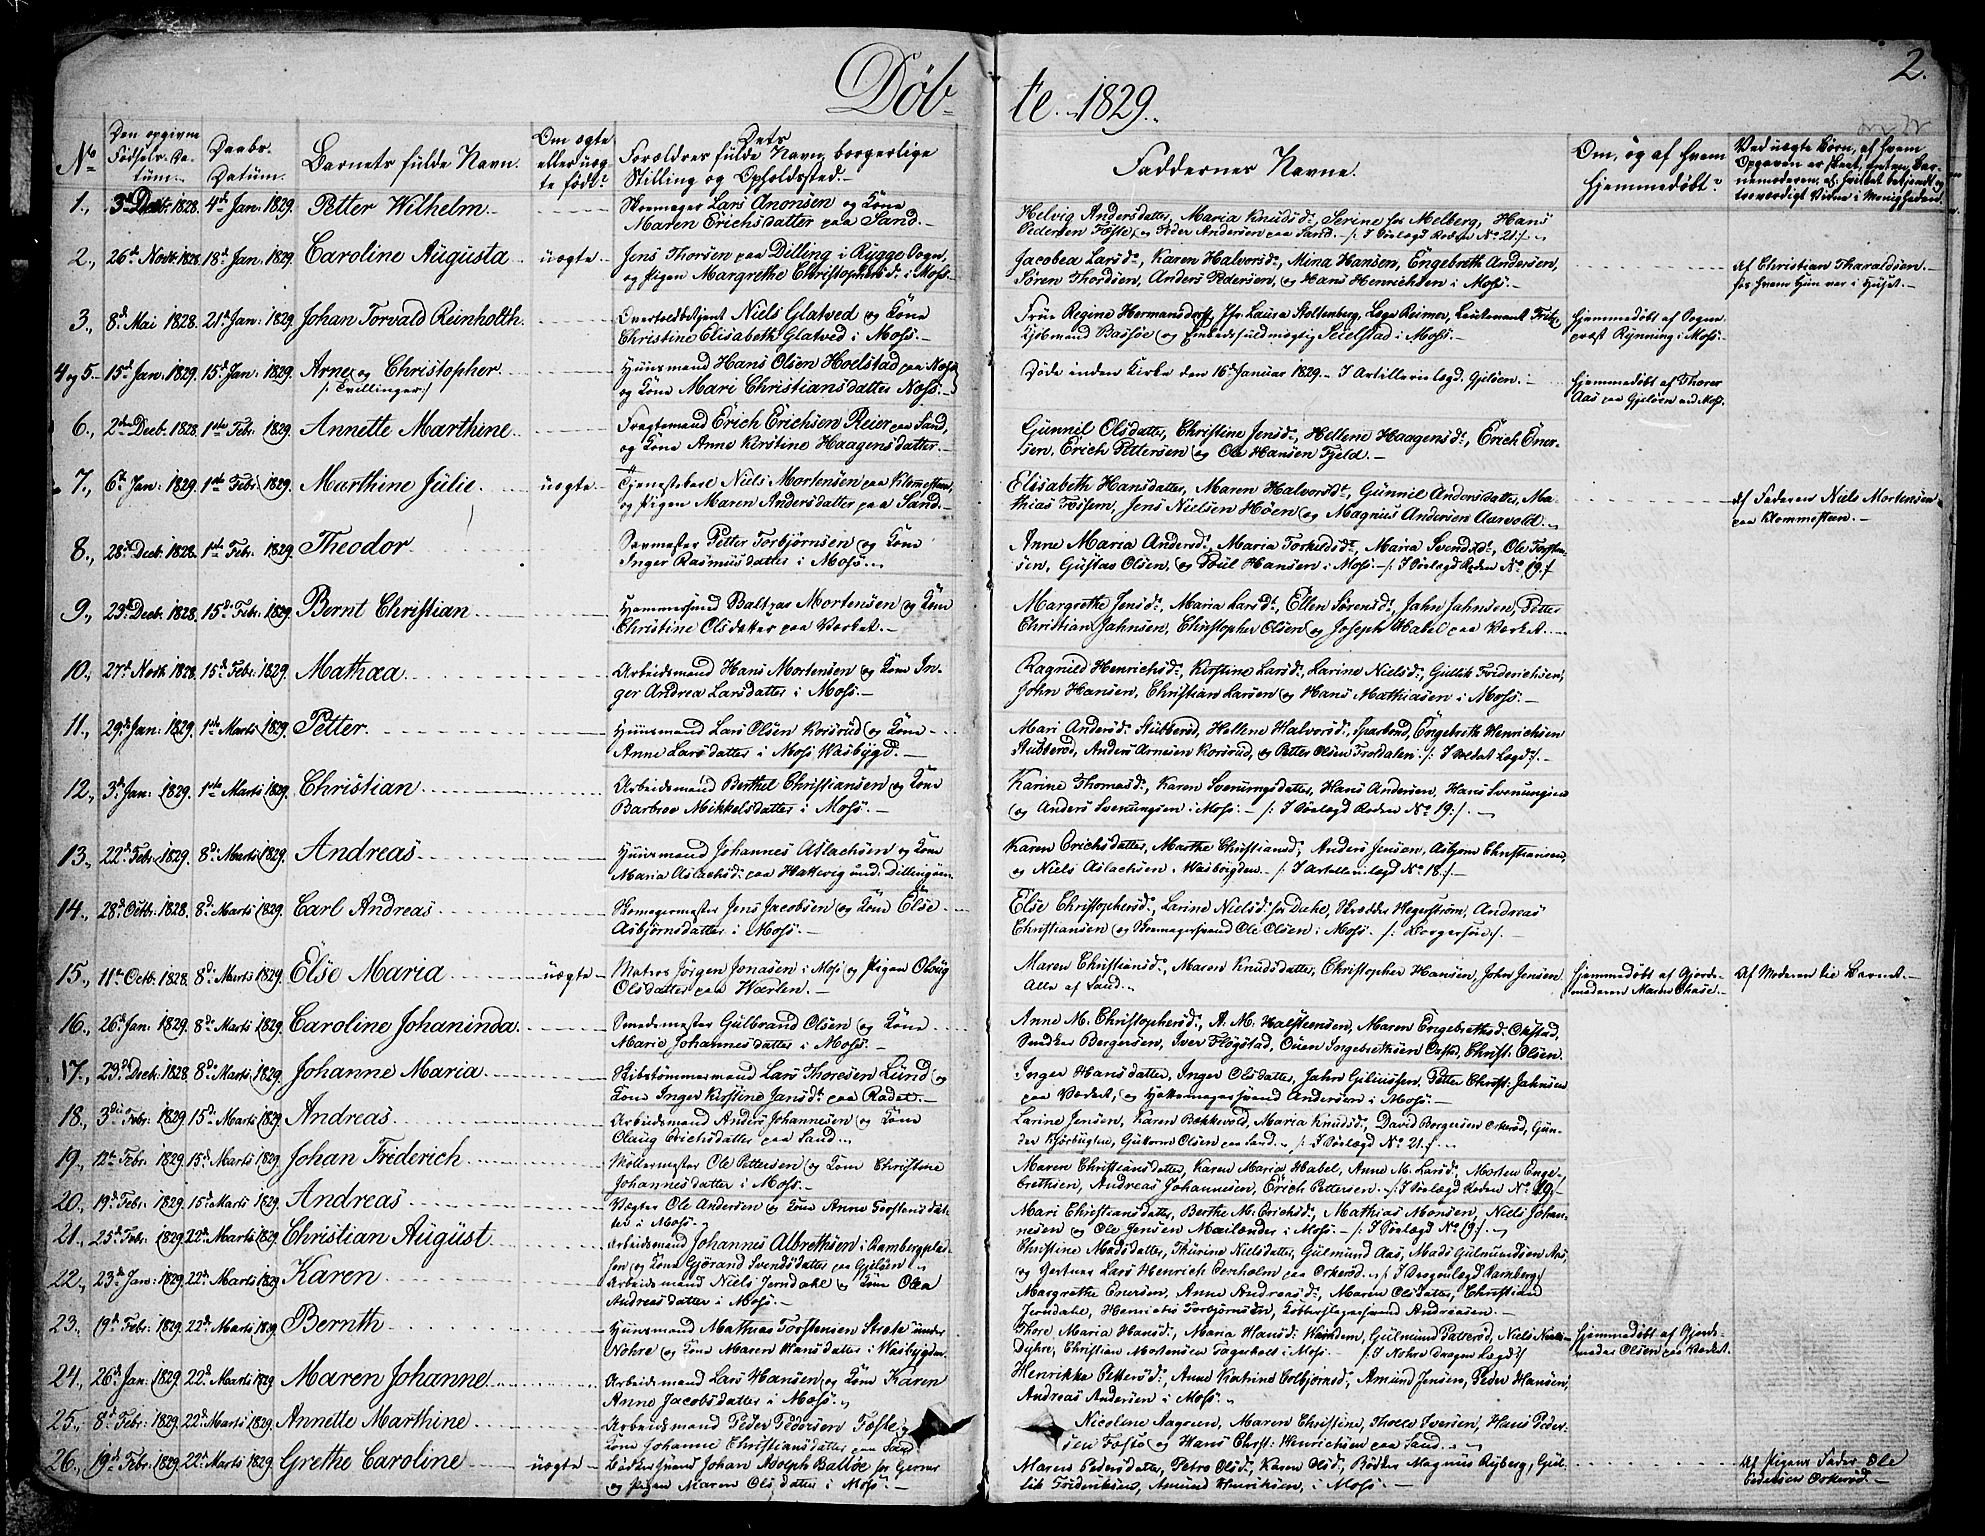 Döb-
te 1829.
2.
No
Den opgivne Födsels-Datum.
Daabs-Datum.
Barnets fulde Navn.
Om ægte eller uægte født?
Dets Forældres fulde Navn, borgerlige Stilling og Opholdssted.
Faddernes Navne.
Om, og af hvem hjemmedöbt?
Ved uægte Börn, af hvem Opgaven er skeet, enten Barnemoderen, etc.
1., 3de Decbr. 1828. 4de Jan: 1829. Petter Wilhelm.
Skomager Lars Anonsen og Kone
Maren Erichsdatter paa Sand.
Helvig Andersdatter, Maria Knudsd:, Serine Melberg, Hans
Pedersen Föste, og Peder Andersen paa Sand. /: I Sölægd Roden No 21 :/
2., 26de Novbr. 1828. 18de Jan: 1829. Caroline Augusta uægte
Jens Thorsen paa Dilling i Rygge Sogn,
og Pigen Margrethe Christophersd: i Moss.
Jacobea Larsd:, Karen Halvorsd:, Mina Hansen, Engebreth Andersen,
Sören Thordsen, Anders Pedersen, og Hans Henrichsen i Moss.
Af Christian Tharaldsen.
for hvem Hun var i Huset.
3., 8de Mai 1828. 21de Jan: 1829. Johan Torvald Reinholth.
Overtoldbetjent Niels Glatved og Kone
Christine Elisabeth Glatved i Moss.
Frue Regine Hermansdorf, Jfr. Laura Stoltenberg, Læge Reimer, Lieutenant Fritz,
Kjöbmand Bassöe og Embedsfuldmægtig Seielstad i Moss.
Hjemmedöbt af Sogne-
præst Rynning i Moss.
4 og 5. 15de Jan: 1829. 15de Jan: 1829. Arne og Christopher.
/: Tvillinger :/
Huusmand Hans Olsen Hoelstad paa Næss
og Kone Mari Christiansdatter Næss.
Döde inden Kirke den 16de Januar 1829. I Artillerielægd. Gjelöen.
Hjemmedöbt af Thorer
Aas paa Gjelöen ved Moss.
6., 2den Decbr. 1828. 1ste Febr. 1829. Annette Marthine.
Fragtemand Erich Erichsen Reier paa Sand,
og Kone Anne Kirstine Haagensdatter.
Gunnil Olsdatter, Christine Jensd:, Hellene Haagensd:, Erich Ener-
sen, Erich Pettersen og Ole Hansen Fjeld.
7., 6te Jan: 1829. 1ste Febr. 1829. Marthine Julie. uægte
Tjenestekarl Niels Mortensen paa Klommesteen,
og Pigen Maren Andersdatter paa Sand.
Elisabeth Hansdatter, Maren Halvorsd:, Gunnil Andersdatter, Ma-
thias Fossum, Jens Nielsen Höen og Magnus Andersen Aarvold.
Af Faderen Niels Mortensen
paa Klommesteen.
8., 28de Decbr. 1828. 1ste Febr. 1829. Theodor.
Savmester Petter Torbjörnsen og Kone
Inger Rasmusdatter i Moss.
Anne Maria Andersd:, Maria Torkildsd:, Maria Svendsd:, Ole Torsten-
sen, Gustav Olsen, og Poul Hansen i Moss. /: I Sölægd Roden No 19 :/
9., 23de Decbr. 1828. 15de Febr. 1829. Bernt Christian
Hammersmed Baltzar Mortensen og Kone
Christine Olsdatter paa Værket.
Margrethe Jensd:, Maria Larsd:, Ellen Sörensd:, Jahn Jahnsen, Petter
Christian Jahnsen, Christopher Olsen og Joseph Habel paa Værket.
10., 27de Novbr. 1828. 15de Febr. 1829. Mathæa
Arbeidsmand Hans Mortensen og Kone In-
ger Andrea Larsdatter i Moss.
Ragnild Henrichsd:, Kirstine Larsd:, Larine Nielsd:, Gullik Friderichsen,
John Hansen, Christian Larsen og Hans Mathiasen i Moss.
11., 29de Jan: 1829. 1ste Marts 1829. Petter.
Huusmand Lars Olsen Korsrud og Kone
Anne Larsdatter i Moss Wasbygd.
Mari Andersd: Stubberöd, Hellene Halvorsd: Sparbond, Engebrith Henrichsen
Stubberöd, Anders Arnesen Korsrud, og Petter Olsen Troldalen. /: I Soldat Lægd :/
12., 3de Jan: 1829. 1ste Marts 1829. Christian
Arbeidsmand Berthel Christiansen og Kone
Barbroe Mikkelsdatter i Moss.
Karine Thomasd:, Karen Svenungsdatter, Hans Andersen, Hans Svenungsen
og Anders Svenungsen i Moss. /: I Sölægd Roden No 19 :/
13., 22de Febr. 1829. 8de Marts 1829. Andreas
Huusmand Johannes Aslachsen og Kone
Maria Aslachsd: paa Hakkvig und: Dillingöen
Karen Erichsdatter, Marthe Christiansd:, Anders Jensen, Asbjörn Christiansen,
og Niels Aslachsen i Wasbögden. /: I Artillerilægd No 18 :/
14., 28de Octbr. 1828. 8de Marts 1829. Carl Andreas
Skomagermester Jens Jacobsen og Kone Else
Asbjörnsdatter i Moss.
Else Christophersd:, Larine Nielsd: for Duhe, Skrædder Hegerström, Andreas
Christiansen og Skomagersvend Ole Olsen i Moss. /: Borgersöe :/
15., 11te Octb. 1828. 8de Marts 1829. Else Maria uægte
Matros Jörgen Jonasen i Moss og Pigen Olaug
Olsdatter paa Warlen.
Maren Christiansd:, Maren Knudsdatter, Christopher Hansen, John Jensen
Alle af Sand.
Hjemmedöbt af Gjorde-
moderen Maren Chase.
Af Moderen til Barnet.
16., 26de Jan: 1829. 8de Marts 1829. Caroline Johaninda.
Smedemester Gulbrand Olsen og Kone
Marie Johannesdatter i Moss.
Anne M. Christophersd:, A. M. Halfstensen, Maren Engebrethsd: Ofstad,
Snedker Bergersen, Iver Flögstad, Ouen Ingebrethsen Oxfte, Christ: Olsen.
17., 23de Decbr. 1828. 8de Marts 1829. Johanne Maria
Skibstömmermand Lars Thoresen Lund og
Kone Inger Kirstine Jansd: paa Rødet.
Inger Hansdatter, Inger Olsdatter, Jahn Giliussen, Petter Christ: Jahnsen
paa Værket, og Hattemagersvend Andersen i Moss.
18., 3die Febr: 1829. 15de Marts 1829. Andreas
Arbeidsmand Anders Johannesen og Kone
Olaug Erichsdatter paa Sand.
Larine Jensen, Karen Bækkevold, Maria Knudsd:, David Borgersen Orkeröd, Gun-
der Kjörbugten, Guttorm Olsen paa Sand. /: I Sölægd No 21 :/
19., 12te Febr: 1829. 15de Marts 1829. Johan Friderich
Möllermester Ole Pettersen og Kone Christine
Johannesdatter i Moss.
Maren Christiansdatter, Karen Maria Habel, Anne M. Larsd:, Morten Enge-
brethsen, Andreas Johannesen, Erich Pettersen. /: I Sölægd Roden No 19 :/
20., 19de Febr: 1829. 15de Marts 1829. Andreas
Vægter Ole Andersen og Kone Anne Torstensdat-
ter i Moss.
Mari Christiansdatter, Berthe M. Erichsd:, Mathias Monsen, Niels Johan-
nesen og Ole Jensen Mælander i Moss. /: I Sölægd No 19 :/
21., 25de Febr: 1829. 22de Marts 1829. Christian August
Arbeidsmand Johannes Albrethsen i Rambergplad-
sen og Kone Gjörand Svendsdatter paa Gjelöen
Christine Madsdatter, Thurine Nielsdatter, Gulmund Aas, Mads Gulmundsen Aas,
og Gertner Lars Henrich Cederholm paa Orkeröd. /: I Dragonlægd Ramberg :/
22., 23de Jan: 1829. 22de Marts 1829. Karen
Arbeidsmand Niels Jerndahl og Kone Olea
Andreasdatter i Moss.
Margrethe Enersen, Anne Andreasd:, Maren Olsdatter, Christian
Jerndahl, Henrich Torbjörnsen, Kobberslagersvend Andreasen.
23., 19de Febr: 1829. 22de Marts 1829. Bernth
Huusmand Mathias Torstensen Strete under
Nohre og Kone Maren Hansdatter i Wasbygden
Thore Maria Hansd:, Maria Hansd: Kambem, Gulmund Patteröd, Niels Niels-
Dyhre, Christian Mortensen Fagerholt i Moss. /: I Nohre Dragon Lægd :/
Hjemmedöbt af Gjorde-
moder Olsen paa Værket.
24., 26de Jan: 1829. 22de Marts 1829. Maren Johanne
Arbeidsmand Lars Hansen og Kone Karen
Anne Jacobsdatter i Moss.
Henrikke Pettersd:, Anne Katrine Colbjörnsd:, Amund Jensen, Peder Hansen,
Andreas Andersen i Moss.
25., 8de Febr: 1829. 22de Marts 1829. Annette Marthine
Arbeidsmand Peder Peddersen Foste og
Kone Johanne Christiansdatter paa Sand
Nicoline Aagesen, Maren Christine, Tholle Iversen, Hans Peder-
sen Foste og Hans Christ: Henrichsen paa Sand.
26., 19de Febr: 1829. 22de Marts 1829. Grethe Caroline uægte
Bödkersvend Johan Adolph Balloe for Garver
og Pigen Maren Olsdatter i Moss.
Maren Pedersdatter, Petro Olsd:, Karen Olsd:, Bödker Magnus Ryberg, Gul-
lik Friderichsen, Amund Henriksen, i Moss.
Af Pigens Fader Ole
Pedersen Orkeröd.